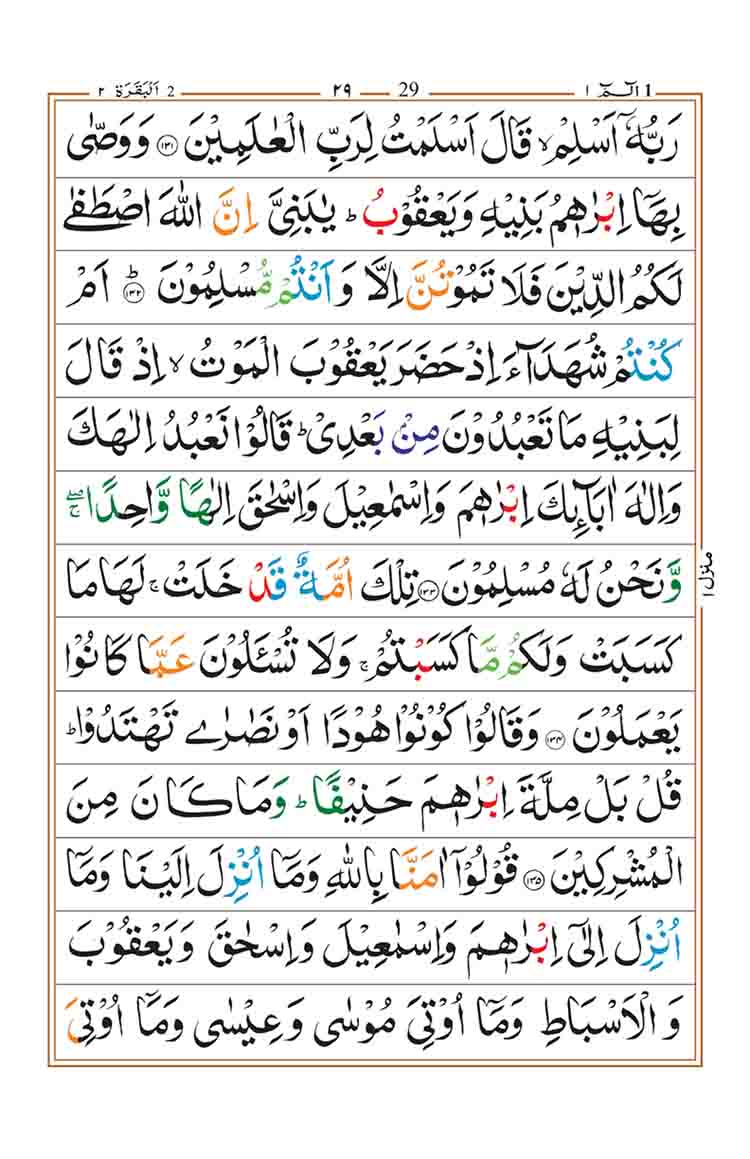 1 الٓـمّٓ ۱ 29 ۲۹ 2 اَلْبَقَرَة ۲
رَبُّهٗۤ اَسْلِمْ ۙ قَالَ اَسْلَمْتُ لِرَبِّ الْعٰلَمِیْنَ ﴿۱۳۱﴾ وَوَصّٰی
بِهَاۤ اِبْرٰهٖمُ بَنِیْهِ وَیَعْقُوْبُ ؕ یٰبَنِیَّ اِنَّ اللّٰهَ اصْطَفٰی
لَكُمُ الدِّیْنَ فَلَا تَمُوْتُنَّ اِلَّا وَاَنْتُمْ مُّسْلِمُوْنَ ﴿۱۳۲﴾ؕ اَمْ
كُنْتُمْ شُهَدَآءَ اِذْ حَضَرَ یَعْقُوْبَ الْمَوْتُ ۙ اِذْ قَالَ
لِبَنِیْهِ مَا تَعْبُدُوْنَ مِنْۢ بَعْدِیْ ؕ قَالُوْا نَعْبُدُ اِلٰهَكَ
وَاِلٰهَ اٰبَآىِٕكَ اِبْرٰهٖمَ وَاِسْمٰعِیْلَ وَاِسْحٰقَ اِلٰهًا وَّاحِدًا ۖۚ
وَّنَحْنُ لَهٗ مُسْلِمُوْنَ ﴿۱۳۳﴾ تِلْكَ اُمَّةٌ قَدْ خَلَتْ ۚ لَهَا مَا
كَسَبَتْ وَلَكُمْ مَّا كَسَبْتُمْ ۚ وَلَا تُسْـَٔلُوْنَ عَمَّا كَانُوْا
یَعْمَلُوْنَ ﴿۱۳۴﴾ وَقَالُوْا كُوْنُوْا هُوْدًا اَوْ نَصٰرٰی تَهْتَدُوْا ؕ
قُلْ بَلْ مِلَّةَ اِبْرٰهٖمَ حَنِیْفًا ؕ وَمَا كَانَ مِنَ
الْمُشْرِكِیْنَ ﴿۱۳۵﴾ قُوْلُوْۤا اٰمَنَّا بِاللّٰهِ وَمَاۤ اُنْزِلَ اِلَیْنَا وَمَاۤ
اُنْزِلَ اِلٰۤی اِبْرٰهٖمَ وَاِسْمٰعِیْلَ وَاِسْحٰقَ وَیَعْقُوْبَ
وَالْاَسْبَاطِ وَمَاۤ اُوْتِیَ مُوْسٰی وَعِیْسٰی وَمَاۤ اُوْتِیَ
منزل ۱